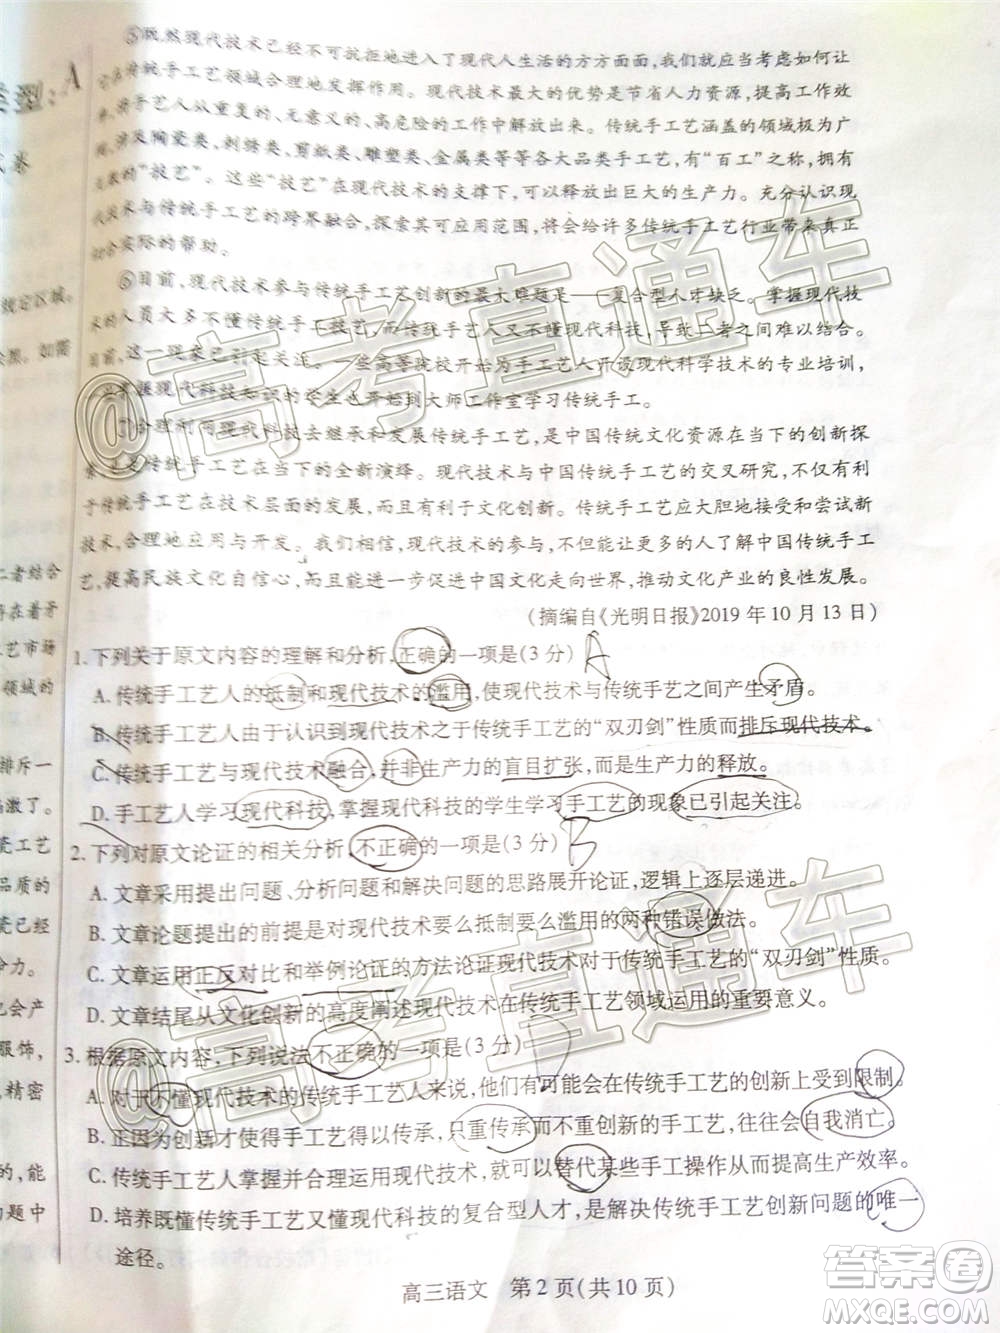 ⑤既然现代技术已经不可抗拒地进入了现代人生活的方方面面,我们就应当考虑让
它在传统手工艺领域合理地发挥作用。现代技术最大的优势是节省人力资源,提高工作效
率,将手工艺人从重复的、无意义的、高危险的工作中解放出来。传统手工艺涵盖的领域极为广
泛,涉及陶瓷类、刺绣类、剪纸类、雕塑类、金属类等等各大品类手工艺,有“百工”之称,拥有丰
的“技艺”。这些“技艺”在现代技术的支撑下,可以释放出巨大的生产力。充分认识现
代技术与传统手工艺的跨界融合,探索其可应用范围,将会给许多传统手工艺行业带来真
切合实际的帮助。
⑥目前,现代技术参与传统手工艺创新的最大难题是——复合型人才缺乏。掌握现代技
术的人员大多不懂传统手工技艺,而传统手工艺人又不懂现代科技,导致二者之间难以结合。
目前,这一现象已引起关注。一些高等院校开始为手工艺人开设现代科学技术的专业培训,
一些掌握现代科技知识的学生也开始到大师工作室学习传统手工。
⑦合理利用现代科技去继承和发展传统手工艺,是中国传统文化资源在当下的创新探
索,又是在当下的全新演绎。现代技术与中国传统手工艺的交叉研究,不仅有利
于传统手工艺在技术层面的发展,而且有利于文化创新。传统手工艺应大胆地接受和尝试新
技术,合理地应用与开发。我们相信,现代技术的参与,不但能让更多的人了解中国传统手工
艺,提高民族文化自信心,还能促进中国文化走向世界,推动文化产业的良性发展。
(摘编自《光明日报》2019年10月13日)
1.下列关于原文内容的理解和分析,正确的一项是(3分) A
A.传统手工艺人的抵制和现代技术的滥用,使现代技术与传统手艺之间产生矛盾。
B.传统手工艺人由于认识到现代技术之于传统手工艺的“双刃剑”性质而排斥现代技术。
C.传统手工艺与现代技术融合,并非生产力的盲目扩张,而是生产力的释放。
D.手工艺人学习现代科技,掌握现代科技的学生学习手工艺的现象已引起关注。
2.下列对原文论证的相关分析,不正确的一项是(3分) B
A.文章采用提出问题、分析问题和解决问题的思路展开论证,逻辑上逐层递进。
B.文章论题提出的前提是对现代技术要么抵制要么滥用的两种错误做法。
C.文章运用正反对比和举例论证的方法论证现代技术对于传统手工艺的“双刃剑”性质。
D.文章结尾从文化创新的高度阐述现代技术在传统手工艺领域运用的重要意义。
3.根据原文内容,下列说法不正确的一项是(3分)
A.对于不懂现代技术的传统手工艺人来说,他们有可能会在传统手工艺的创新上受到限制。
B.正因为创新才使得手工艺得以传承,只重传承而不重创新的手工艺,必将会自我消亡。
C.传统手工艺人掌握并合理运用现代技术,可以替代某些手工操作从而提高生产效率。
D.培养既懂传统手工艺又懂现代科技的复合型人才,是解决传统手工艺创新问题的唯一
途径。
高三语文 第2页(共10页)
类型:A
规定区域。
如需
二者结合
存在着矛
艺市场
领域的
排斥一
激了。
瓷工艺
品质的
瓷已经
力。
也会产
服饰,
精密
的,能
问题中
@高考直通车
@高考直通车
答案圈
MXQE.COM